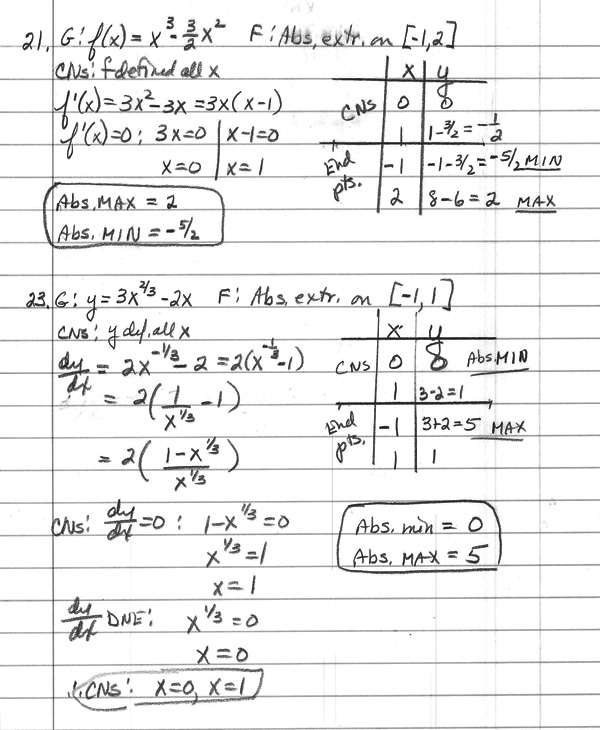 21. G: f(x) = x³ - 3/2 x² F: Abs. extr. on [-1,2]
CNs: f defined all x
f'(x) = 3x² - 3x = 3x(x-1)
f'(x)=0: 3x=0 | x-1=0
x=0 | x=1
Abs. MAX = 2
Abs. MIN = -5/2
x | y
CNs 0 | 0
1 | 1-3/2 = -1/2
End pts. -1 | -1-3/2 = -5/2 MIN
2 | 8-6 = 2 MAX
23. G: y = 3x^(2/3) - 2x F: Abs. extr. on [-1,1]
CNs: y def. all x
dy/dx = 2x^(-1/3) - 2 = 2(x^(-1/3) - 1)
= 2(1/x^(1/3) - 1)
= 2((1-x^(1/3))/x^(1/3))
x | y
CNs 0 | 0 Abs. MIN
1 | 3-2=1
End pts. -1 | 3+2=5 MAX
1 | 1
CNs: dy/dx = 0: 1-x^(1/3) = 0
x^(1/3) = 1
x = 1
dy/dx DNE: x^(1/3) = 0
x = 0
∴ CNs: x=0, x=1
Abs. min = 0
Abs. MAX = 5